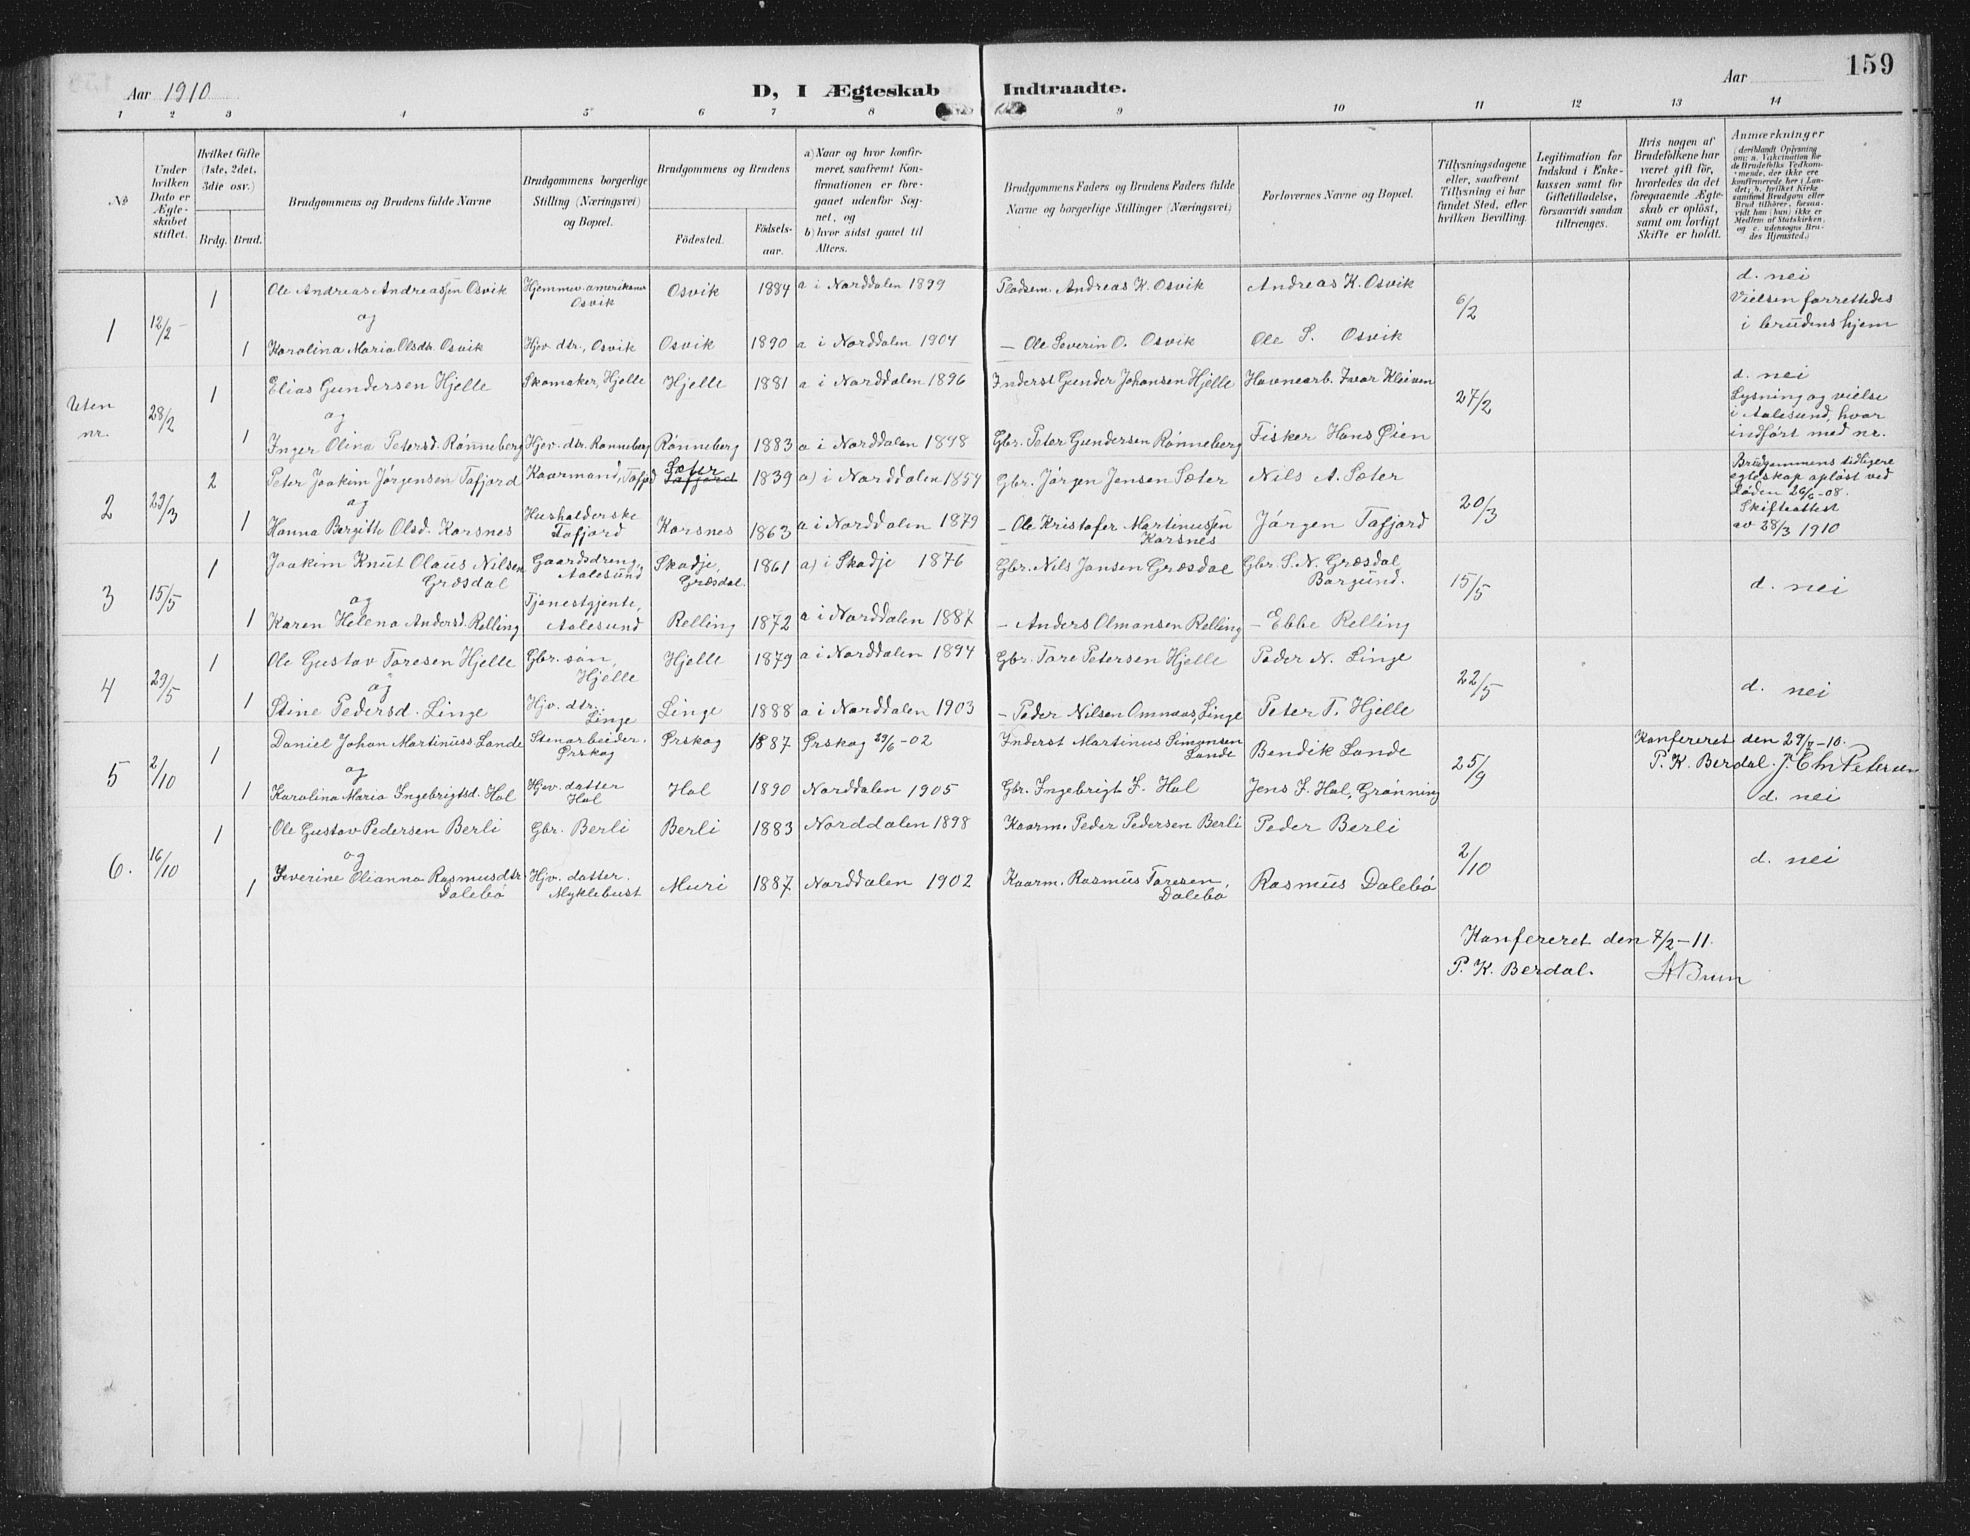 159
Aar 1910
D, I Ægteskab Indtraadte.
Aar
1 2 3 4 5 6 7 8 9 10 11 12 13 14
No
Under hvilken Dato er Ægteskabet stiftet.
Hvilket Gifte (1ste, 2det, 3die osv.)
Brdg. Brud.
Brudgommens og Brudens fulde Navne
Brudgommens borgerlige Stilling (Næringsvei) og Bopæl.
Brudgommens og Brudens
Fødested.
Fødselsaar.
a) Naar og hvor konfirmeret, saafremt Konfirmationen er foregaaet udenfor Sognet, og
b) hvor sidst gaaet til Alters.
Brudgommens Faders og Brudens Faders fulde Navne og borgerlige Stillinger (Næringsvei)
Forlovernes Navne og Bopæl.
Tillysningsdagene eller, saafremt Tillysning ei har fundet Sted, efter hvilken Bevilling.
Legitimation for Indskud i Enkekassen samt for Giftetilladelse, forsaavidt saadan tiltrænges.
Hvis nogen af Brudefolkene har været gift før, hvorledes da det foregaaende Ægteskab er opløst, samt om lovligt Skifte er holdt.
Anmærkninger (deriblandt Oplysning om: a. Vakcination for de Brudefolks Vedkommende, der ikke ere konfirmerede her i Landet; b. hvilket Kirkesamfund Brudgom eller Brud tilhører, forsaavidt han (hun) ikke er Medlem af Statskirken, og c. udensogns Brudes Hjemsted.)
1 12/2 1 Ole Andreas Andreassen Osvik Hjemmev. amerikaner Osvik Osvik 1884 a i Norddalen 1899 Pladsem. Andreas K. Osvik Andreas K. Osvik 6/2 d. nei
og
1 Karolina Maria Olsdtr. Osvik Hjev. dtr., Osvik Osvik 1890 a i Norddalen 1904 – Ole Severin O. Osvik Ole S. Osvik Vielsen forrettedes i brudens hjem
Uten nr. 28/2 1 Elias Gundersen Hjelle Skomaker, Hjelle Hjelle 1881 a i Norddalen 1896 Inderst Gunder Johansen Hjelle Havnearb. Ivar Kleiven 27/2 d. nei
og
1 Inger Olina Petersd. Rønneberg Hjev. dtr. Rønneberg Rønneberg 1883 a i Norddalen 1898 Gbr. Peter Gundersen Rønneberg Fisker Hans Øien Lysning og vielse i Aalesund, hvor indført med nr.
2 23/3 2 Peter Joakim Jørgensen Tafjord Kaarmand, Tafjord Sæter Tafjord 1839 a) i Norddalen 1854 Gbr. Jørgen Jensen Sæter Nils A. Sæter 20/3 Brudgommens tidligere egteskap opløst ved Døden 26/6-08.
og
1 Hanna Bergitte Olsd. Korsnes Husholderske Tafjord Korsnes 1863 a i Norddalen 1879 – Ole Kristofer Martinussen Korsnes Jørgen Tafjord Skifteattest av 28/3 1910
3 15/5 1 Joakim Knut Olaus Nilsen Græsdal Gaardsdreng, Aalesund Skodje, Græsdal 1861 a) i Skodje 1876 Gbr. Nils Jansen Græsdal Gbr. S. N. Græsdal, Borgund. 15/5 d. nei
og
1 Karen Helena Andersd. Relling Tjenestgjente, Aalesund Relling 1872 a i Norddalen 1887 – Anders Olmansen Relling – Ebbe Relling
4 29/5 1 Ole Gustav Toresen Hjelle Gbr. søn, Hjelle Hjelle 1879 a i Norddalen 1894 Gbr. Tore Petersen Hjelle Peder N. Linge 22/5 d. nei
og
1 Stine Pedersd. Linge Hjv. dtr. Linge Linge 1888 a i Norddalen 1903 – Peder Nilsen Omnaas, Linge Peter T. Hjelle
5 2/10 1 Daniel Johan Martinuss. Lande Stenarbeider. Ørskog Ørskog 1887 Ørskog 29/6-02 Inderst Martinus Simonsen Lande Bendik Lande 25/9 Konfereret den
og P. K. Berdal. J. Chr Petersen
1 Karolina Maria Ingebrigtsd. Hol Hjev. datter Hol Hol 1890 Norddalen 1905 Gbr. Ingebrigt I. Hol Jens I. Hol, Grønning d. nei
6. 16/10 1 Ole Gustav Pedersen Berli Gbr. Berli Berli 1883 Norddalen 1898 Kaarm. Peder Pedersen Berli Peder Berli 2/10 d. nei
og
1 Severine Olianna Rasmusdtr. Dalebø Hjv. datter. Myklebust Muri 1887 Norddalen 1902 Kaarm. Rasmus Toresen, Dalebø Rasmus Dalebø
Konfereret den 7/2-11.
P. K. Berdal. A Brun